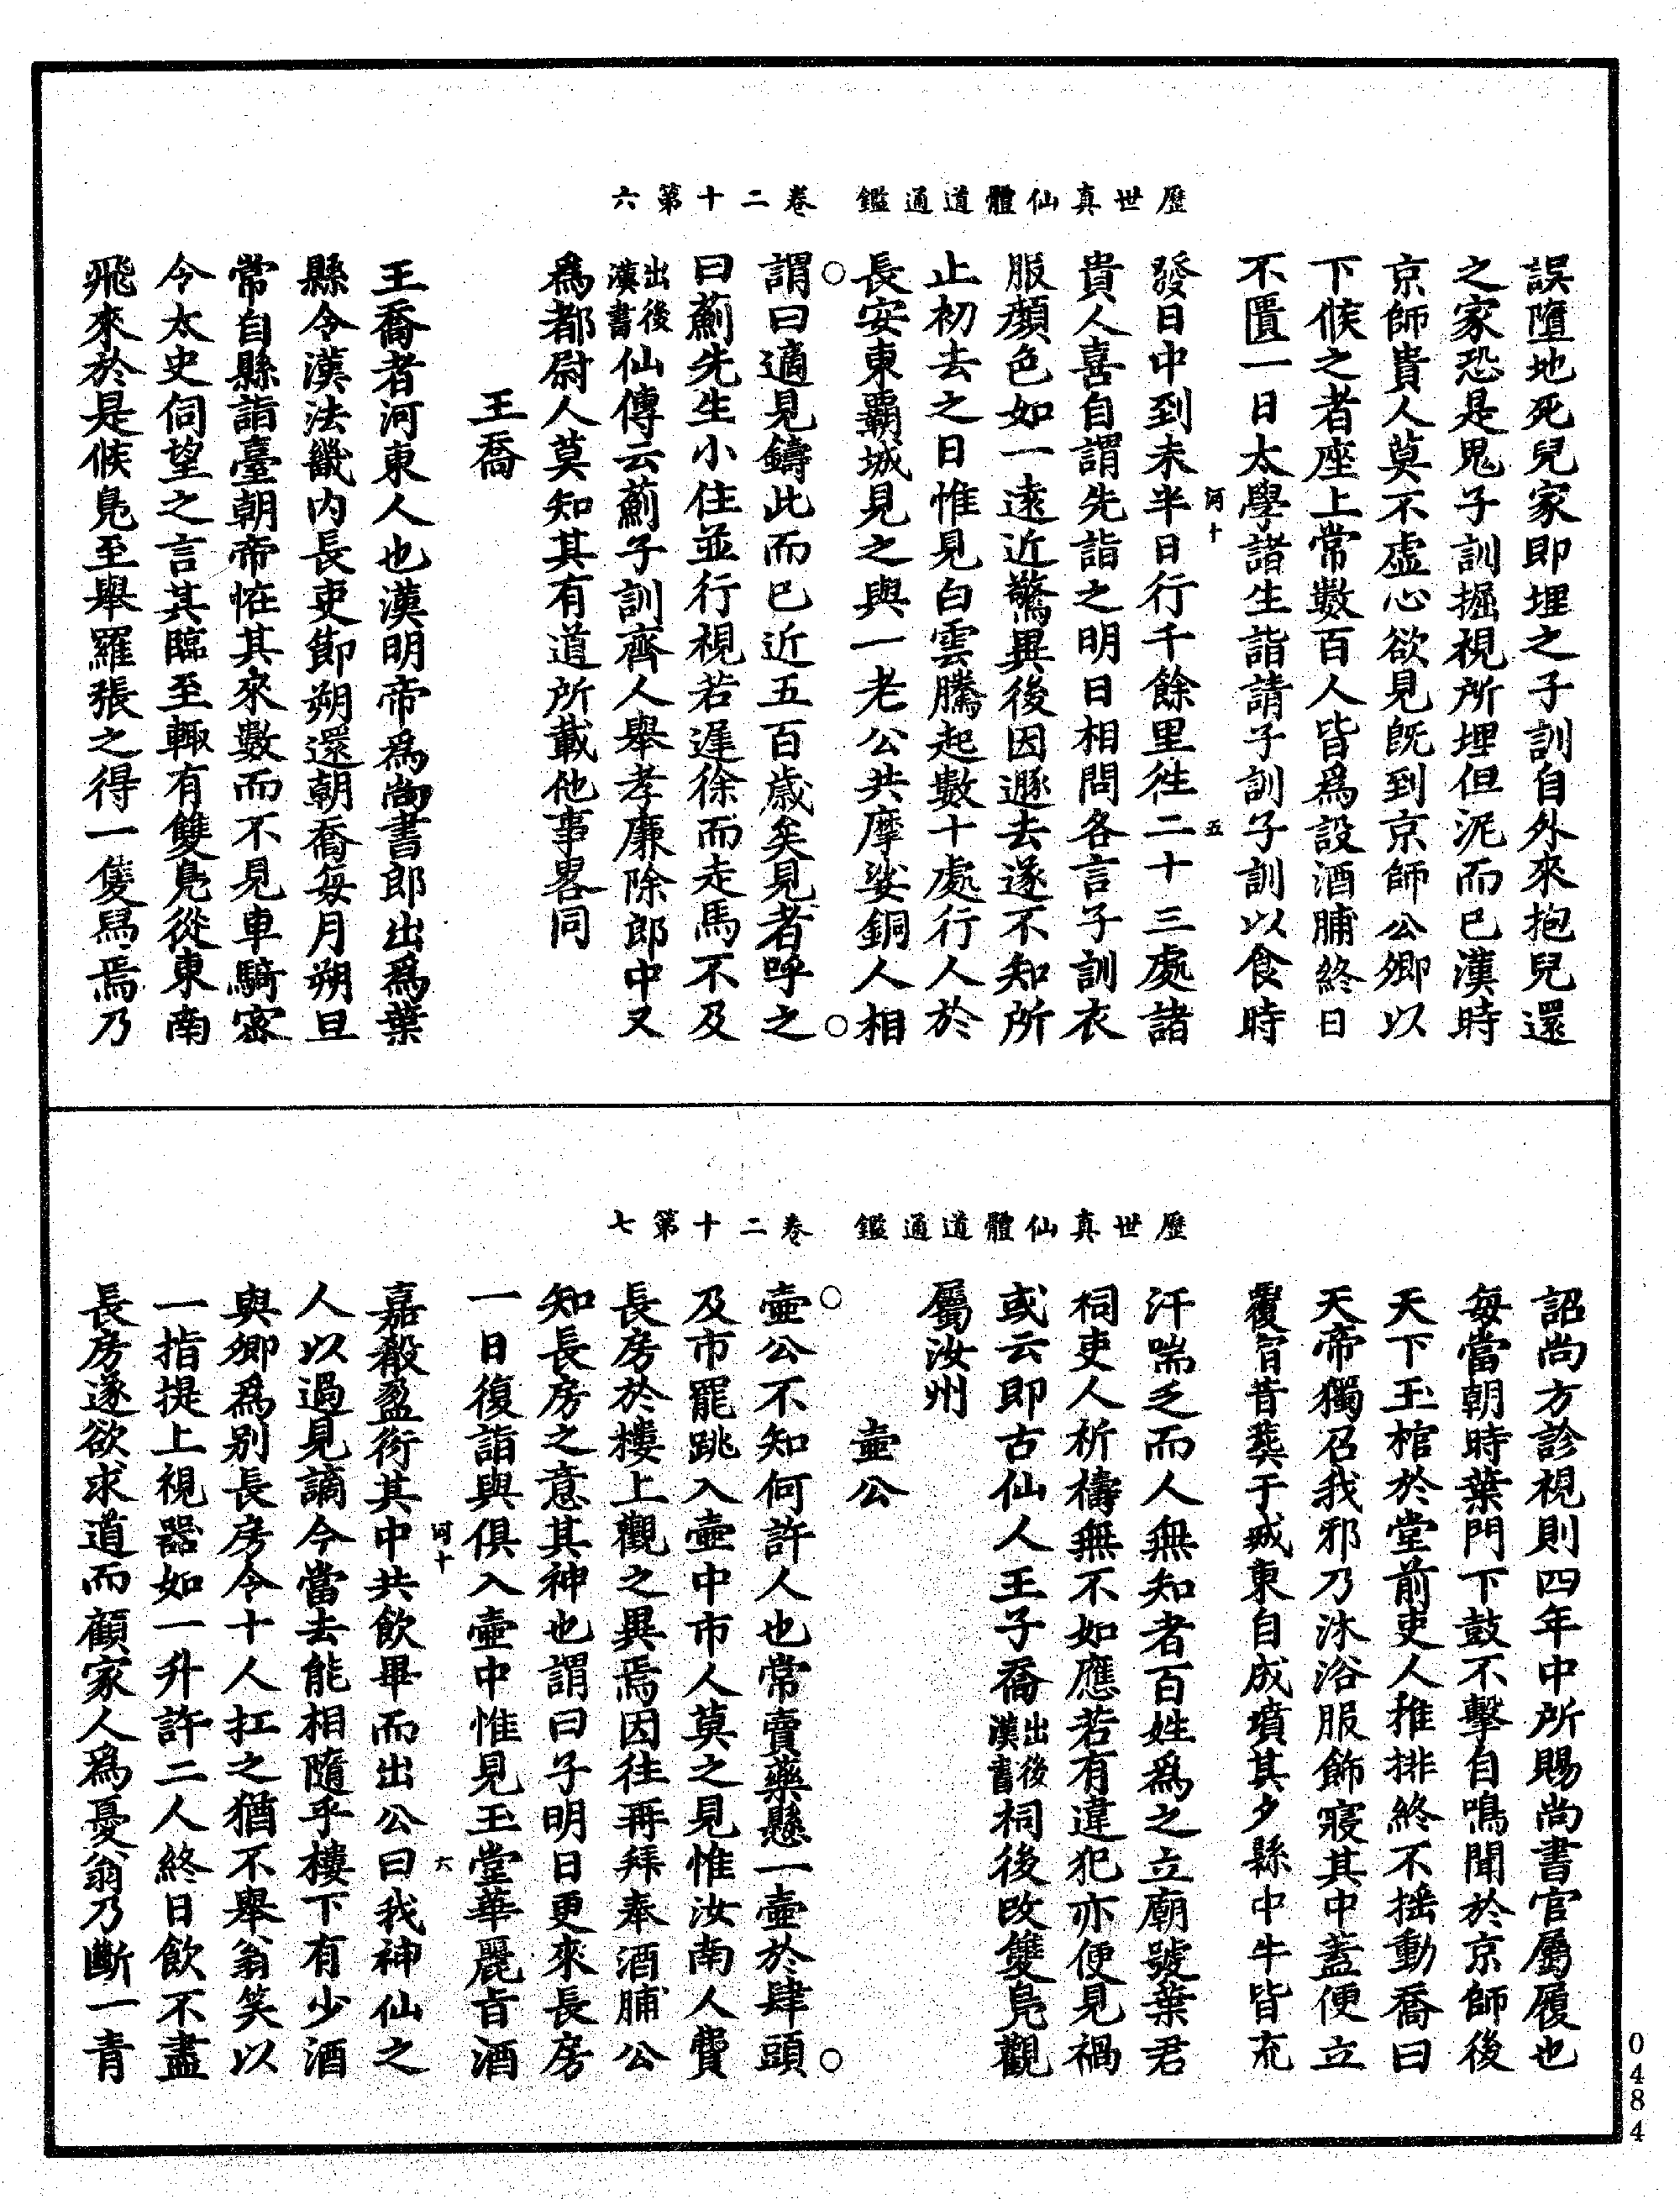 歷世真仙體道通鑑　卷二十第六
誤墮地死兒家即埋之子訓自外來抱兒還
之家恐是鬼子訓掘視所埋但泥而已漢時
京師貴人莫不虛心欲見旣到京師公卿以
下候之者座上常數百人皆爲設酒脯終日
不匱一日太學諸生詣請子訓子訓以食時
訶十　五
發日中到未半日行千餘里往二十三處諸
貴人喜自謂先詣之明日相問各言子訓衣
服顏色如一遠近驚異後因遯去遂不知所
止初去之日惟見白雲騰起數十處行人於
長安東霸城見之與一老公共摩挲銅人相
謂曰適見鑄此而已近五百歲矣見者呼之
曰薊先生小住並行視若遲徐而走馬不及
出後漢書仙傳云薊子訓齊人舉孝廉除郎中又
爲都尉人莫知其有道所載他事畧同
王喬
王喬者河東人也漢明帝爲尚書郎出爲葉
縣令漢法畿内長吏節朔還朝喬每月朔旦
常自縣詣臺朝帝恠其來數而不見車騎密
令太史伺望之言其臨至輙有雙鳧從東南
飛來於是候鳧至舉羅張之得一隻舄焉乃
歷世真仙體道通鑑　卷二十第七
詔尚方診視則四年中所賜尚書官屬履也
每當朝時葉門下鼓不擊自鳴聞於京師後
天下玉棺於堂前吏人推排終不揺動喬曰
天帝獨召我邪乃沐浴服飾寢其中蓋便立
覆宿昔葬于城東自成墳其夕縣中牛皆流
汗喘乏而人無知者百姓爲之立廟號葉君
祠吏人祈禱無不如應若有違犯亦便見禍
或云即古仙人王子喬出後漢書祠後改雙鳧觀
屬汝州
壷公
壷公不知何許人也常賣藥懸一壷於肆頭
及市罷跳入壷中市人莫之見惟汝南人費
長房於樓上觀之異焉因往再拜奉酒脯公
知長房之意其神也謂曰子明日更來長房
一日復詣與俱入壷中惟見玉堂華麗旨酒
訶十　六
嘉殽盈衎其中共飲畢而出公曰我神仙之
人以過見謫今當去能相隨乎樓下有少酒
與卿爲別長房令十人扛之猶不舉翁笑以
一指提上視器如一升許二人終日飲不盡
長房遂欲求道而顧家人爲憂翁乃斷一青
0484